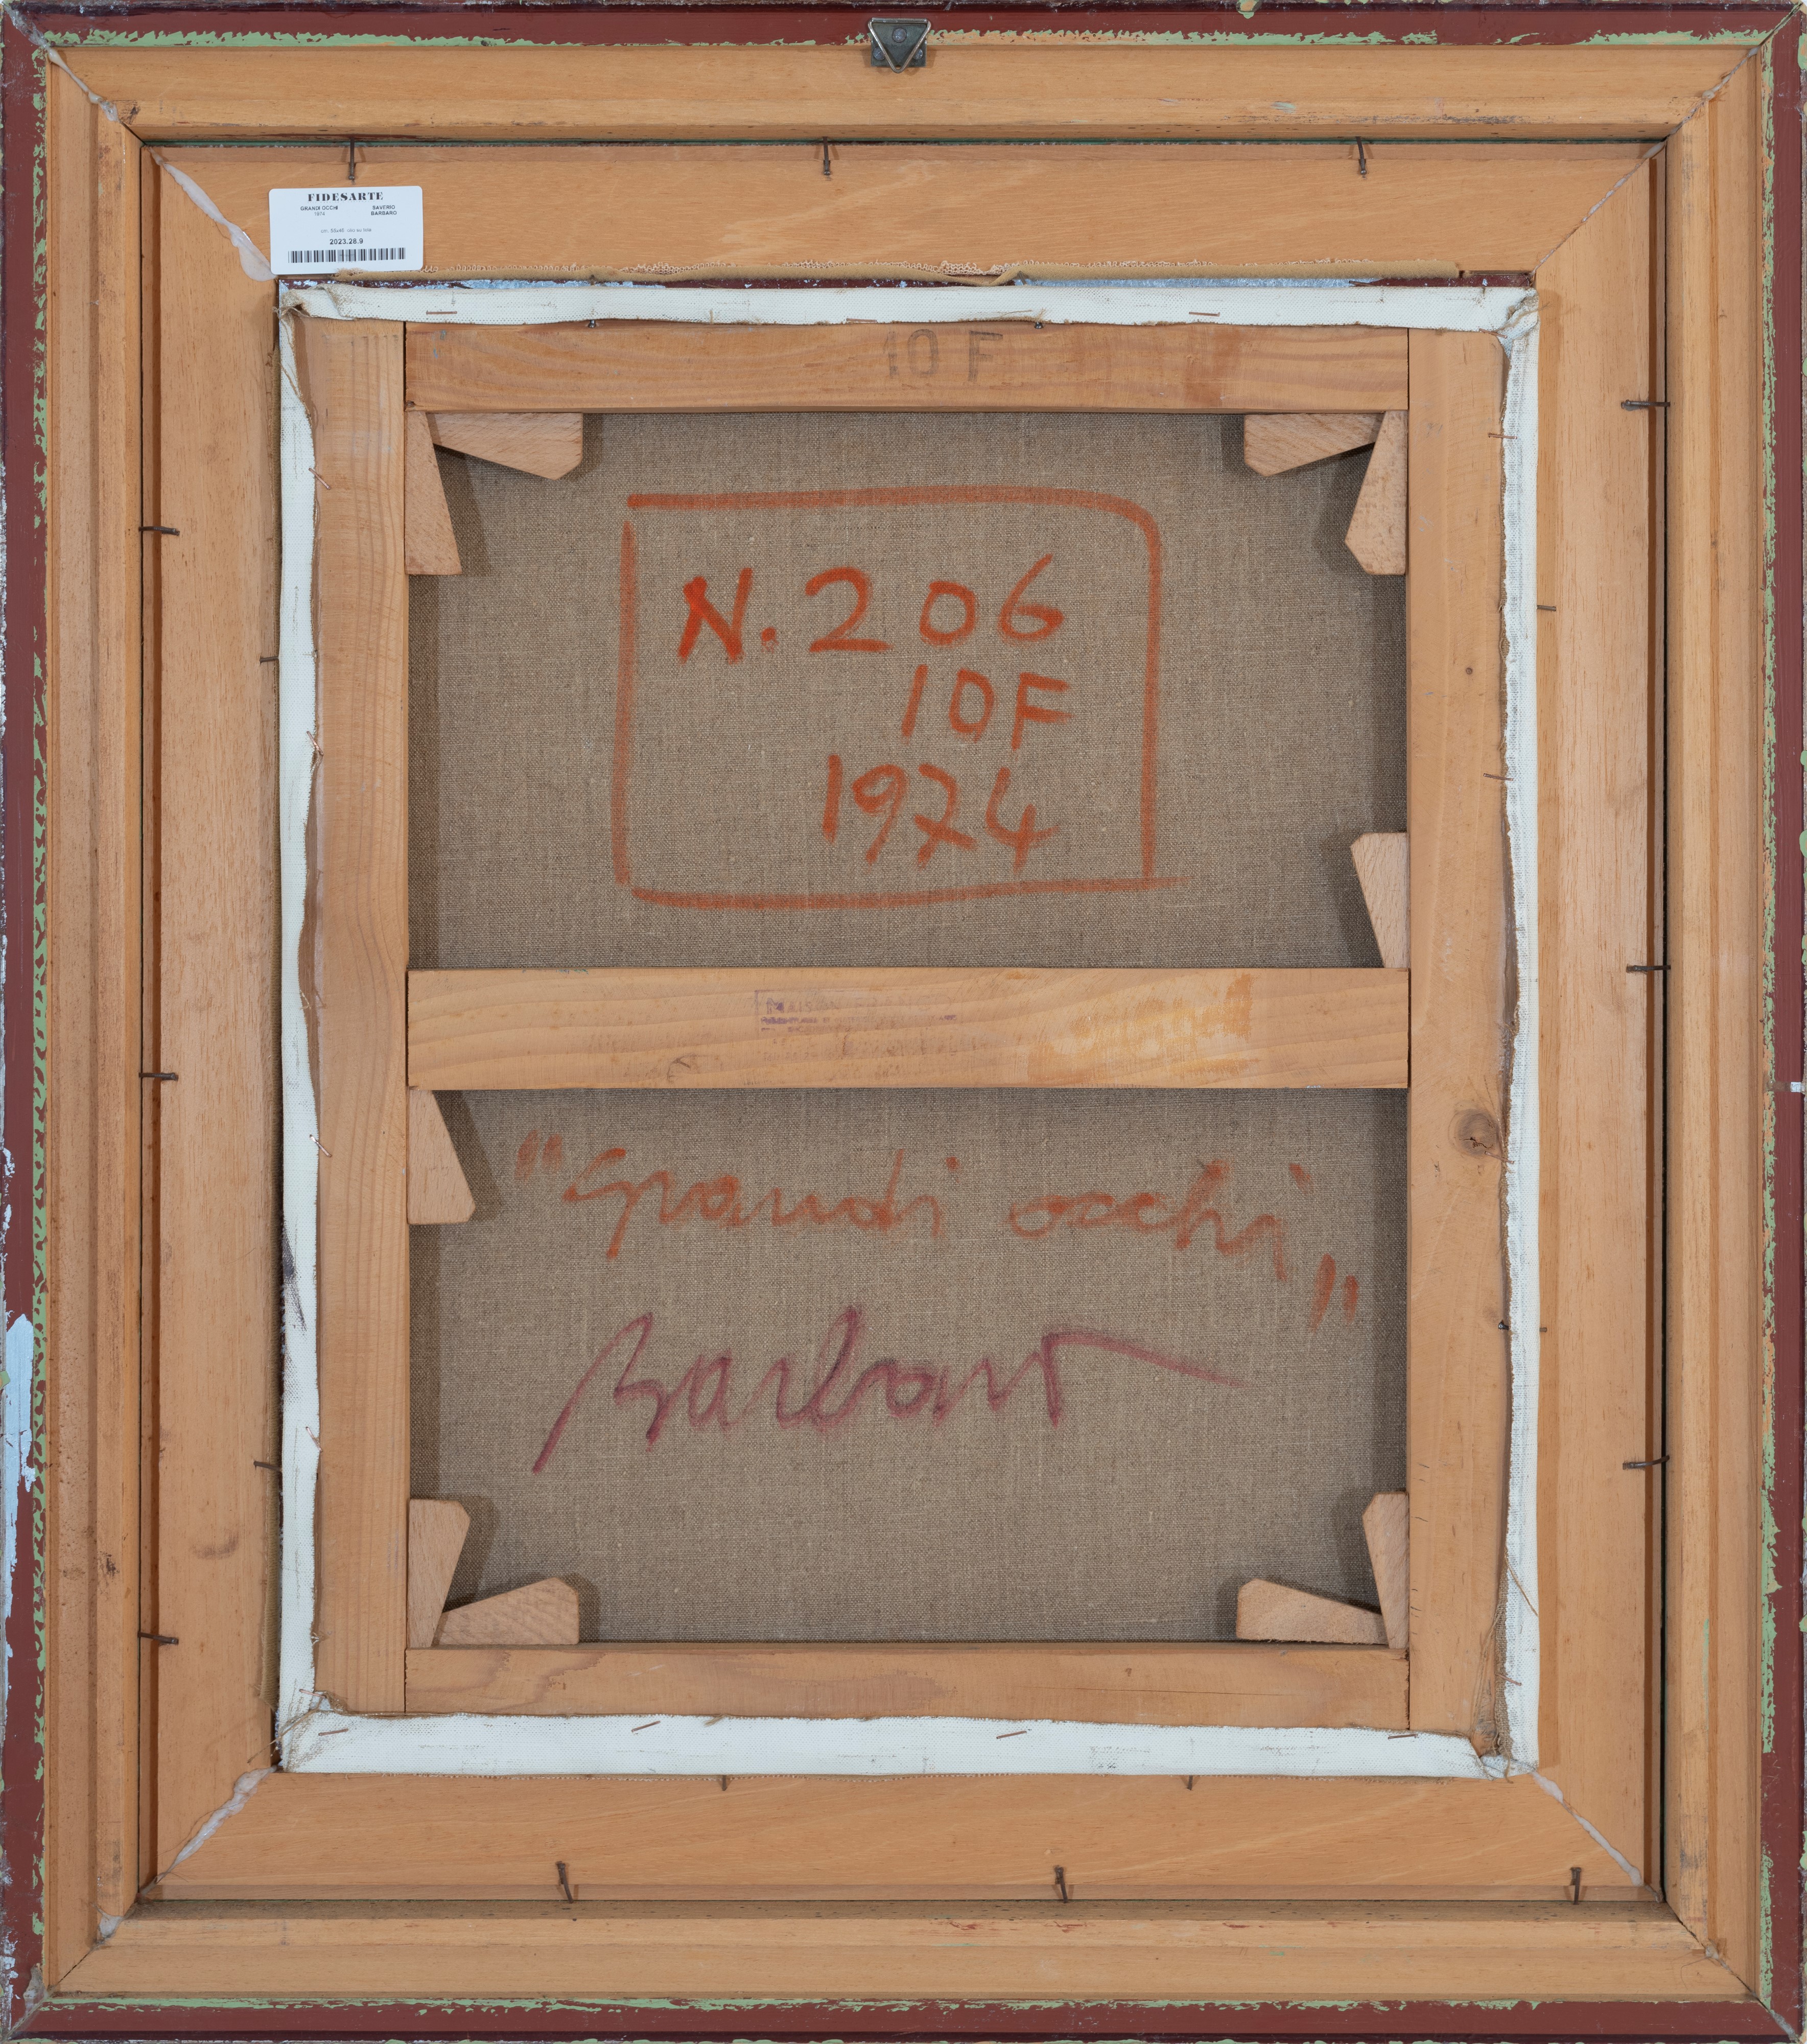 FIDESARTE
GRANDI OCCHI SAVERIO
1974 BARBARO
2023.28.9
10 F
N. 206
10F
1974
"Grandi occhi"
Barbaro